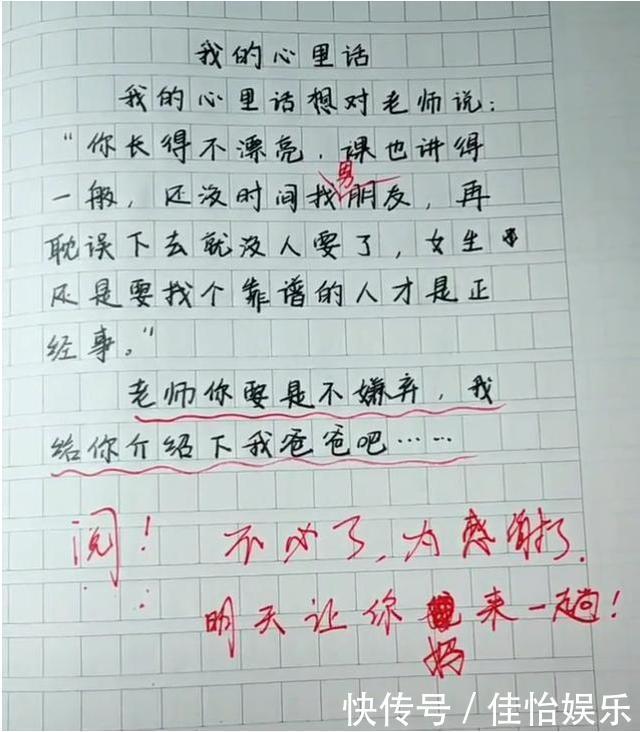 我的心里话
我的心里话想对老师说：
“你长得不漂亮，课也讲得
男
一般，还没时间找朋友，再
耽误下去就没人要了，女生
还是要找个靠谱的人才是正
经事。”
老师你要是不嫌弃，我
给你介绍下我爸爸吧……
阅！ 不必了，为感谢了．
明天让你 来一趟！
妈
快传号／佳怡娱乐